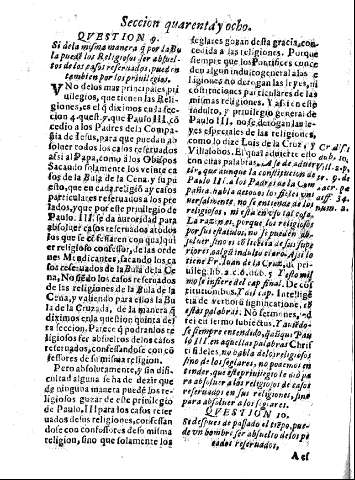 Seccion quarenta y ocho.
QVESTION 9.
Si de la misma manera q̃ por la Bu
la puedẽ los Religiosos ser absuel-
tos de los casos reservados, puedẽ
tambien por los privilegios.
VNo delos mas principales pri
uilegios, que tienen las Reli-
giones, es el q̃ diximos en la sec-
cion 4 quest. 7. que Paulo III, cõ
cedio a los Padres dela Compa-
ñia de Iesus, para que puedan ab
soluer todos los casos reseruados
assi al Papa, como â los Obispos
Sacando solamente los veinte ca
sos de la Bula de la Cena y pu
esto, que en cada religiõ ay casos
particulares reseruados a los pre
lados, que por este priuilegio de
Paulo III. se dâ autoridad para
absoluer casos reseruados atodos
los que se cõfessarẽ con qualqui
er religioso confessor, de las orde
nes Mendicantes, sacando los ca
sos reseruados de la Bula dela Ce
na, No seãdo los casos reseruados
de las religiones de la Bula de la
Cena, y valiendo para ellos la Bu
la de la Cruzada, de la manera q̃
diximos en la question quinta des
ta seccion. Parece q̃ podran los re
ligiosos ser absueltos delos casos
reseruados, confessandose con cõ
fessores de su misma religion.
Pero absolutamente, y sin difi-
cultad alguna se ha de dezir que
de ninguna manera puedẽ los re-
ligiosos gozar de este priuilegio
de Paulo, III para los casos reser
uados desus religiones, confessan
dose con confessores de su misma
religion, sino que solamente los
seglares gozan desta gracia, con-
cedida a las religiones. Porque
siempre que los Pontifices conce
den algun indulto general a las re
ligiones no derogan las leyes, ni
constituciones particulares de las
mismas religiones. Y assi en este
indulto, y priuilegio general de
Paulo III, no se derogan las le-
yes especiales de las religiones,
como lo dize Luis de la Cruz, y
Villalobos. El qual aduierte esto
con estas palabras, A se de aduer-
tir, que aunque la constitucion de
Paulo III. a los Padres de la Com
pañia habla a todos los fieles uni
uersalmente, no se entienda de los
religiosos, ni està en vso tal cosa.
La razon es, porque los religiosos
por sus estatutos, no se pueden ab-
soluer sino es cõ licẽcia de sus supe
riores, salgã indulto claro. Assi lo
tiene F. Juan de la Cruz, di pri-
uileg. lib. 2. c. 6. dub. 5. Y esto mis
mo se infiere del cap. final. De cos
titutionibus. Y del cap. Intellige
tia de verborũ significatione, cõ
estas palabras. No sermoni, sed
rei est sermo subiectus. Y así se dè-
ue siempre entender, q̃ aũ q̃ Pau
lo III, en aquellas palabras Chris
ti fideles, no habla delos religiosos
sino de los seglares, no podemos en
tender, que este priuilegio le dió pa
ra absoluer a los religiosos de casos
reseruados en sus religiones, sino
para absoluer a los seglares.
QVESTION 10.
Si despues de passado el tiẽpo, pue-
de un hombre ser absuelto delos pe
cados reseruados,
A ef